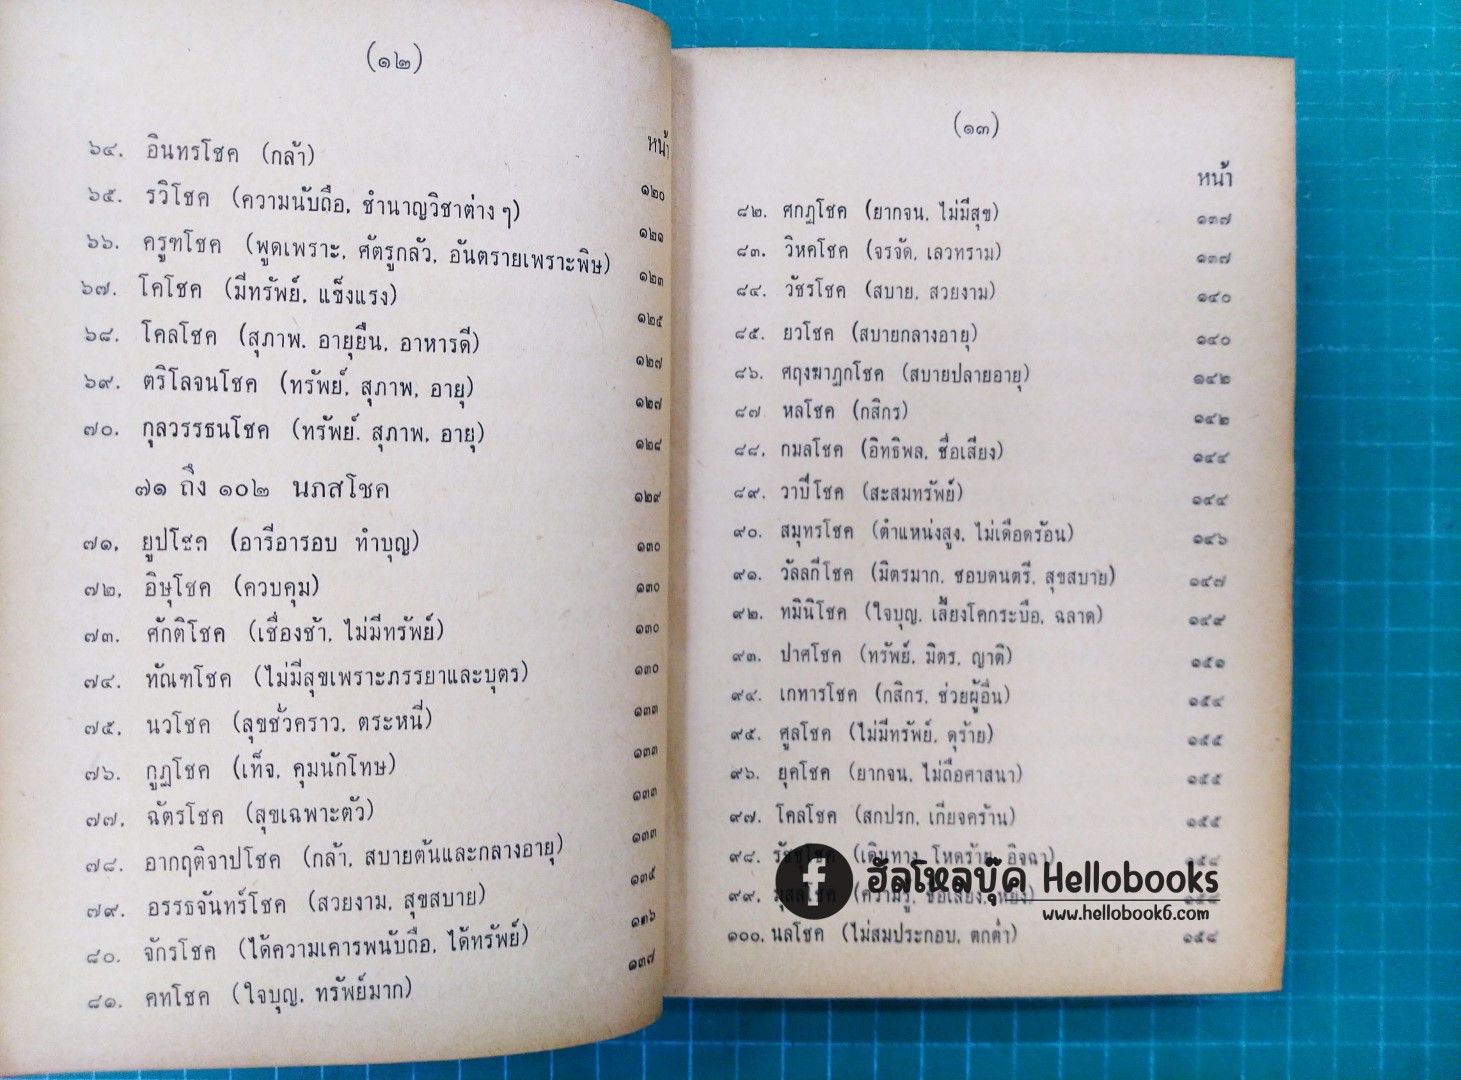 (๑๒)
หน้า
๖๔. อินทรโชค (กล้า) ๑๒๐
๖๕. รวิโชค (ความนับถือ, ชำนาญวิชาต่าง ๆ) ๑๒๑
๖๖. ครูฑโชค (พูดเพราะ, ศัตรูกลัว, อันตรายเพราะพิษ) ๑๒๓
๖๗. โคโชค (มีทรัพย์, แข็งแรง) ๑๒๕
๖๘. โคลโชค (สุภาพ. อายุยืน, อาหารดี) ๑๒๗
๖๙. ตริโลจนโชค (ทรัพย์, สุภาพ, อายุ) ๑๒๗
๗๐. กุลวรรธนโชค (ทรัพย์. สุภาพ, อายุ) ๑๒๘
๗๑ ถึง ๑๐๒ นภสโชค ๑๒๙
๗๑. ยูปโชค (อารีอารอบ ทำบุญ) ๑๓๐
๗๒. อิษุโชค (ควบคุม) ๑๓๐
๗๓. ศักติโชค (เชื่องช้า, ไม่มีทรัพย์) ๑๓๐
๗๔. ทัณฑโชค (ไม่มีสุขเพราะภรรยาและบุตร) ๑๓๐
๗๕. นวโชค (สุขชั่วคราว, ตระหนี่) ๑๓๓
๗๖. กูฏโชค (เท็จ, คุมนักโทษ) ๑๓๓
๗๗. ฉัตรโชค (สุขเฉพาะตัว) ๑๓๓
๗๘. อากฤติจาปโชค (กล้า, สบายต้นและกลางอายุ) ๑๓๓
๗๙. อรรธจันทร์โชค (สวยงาม, สุขสบาย) ๑๓๕
๘๐. จักรโชค (ได้ความเคารพนับถือ, ได้ทรัพย์) ๑๓๖
๘๑. คทโชค (ใจบุญ, ทรัพย์มาก) ๑๓๗
(๑๓)
หน้า
๘๒. ศกฏโชค (ยากจน, ไม่มีสุข) ๑๓๗
๘๓. วิหคโชค (จรจัด, เลวทราม) ๑๓๗
๘๔. วัชรโชค (สบาย, สวยงาม) ๑๔๐
๘๕. ยวโชค (สบายกลางอายุ) ๑๔๐
๘๖. ศฤงฆาฏกโชค (สบายปลายอายุ) ๑๔๒
๘๗ หลโชค (กสิกร) ๑๔๒
๘๘. กมลโชค (อิทธิพล, ชื่อเสียง) ๑๔๔
๘๙. วาปีโชค (สะสมทรัพย์) ๑๔๔
๙๐. สมุทรโชค (ตำแหน่งสูง, ไม่เดือดร้อน) ๑๔๖
๙๑. วัลลกีโชค (มิตรมาก, ชอบดนตรี, สุขสบาย) ๑๔๗
๙๒. ทมินิโชค (ใจบุญ, เลี้ยงโคกระบือ, ฉลาด) ๑๔๙
๙๓. ปาศโชค (ทรัพย์, มิตร, ญาติ) ๑๕๑
๙๔. เกทารโชค (กสิกร, ช่วยผู้อื่น) ๑๕๔
๙๕. ศูลโชค (ไม่มีทรัพย์, ดุร้าย) ๑๕๕
๙๖. ยุคโชค (ยากจน, ไม่ถือศาสนา) ๑๕๕
๙๗. โคลโชค (สกปรก, เกียจคร้าน) ๑๕๕
๙๘. รัชชุโชค (เดินทาง, โหดร้าย, อิจฉา) ๑๕๘
๙๙. มุสลโชค (ความรู้, ชื่อเสียง, หยิ่ง) ๑๕๘
๑๐๐. นลโชค (ไม่สมประกอบ, ตกต่ำ) ๑๕๘
f ฮัลโหลบุ๊ค Hellobooks
www.hellobook6.com